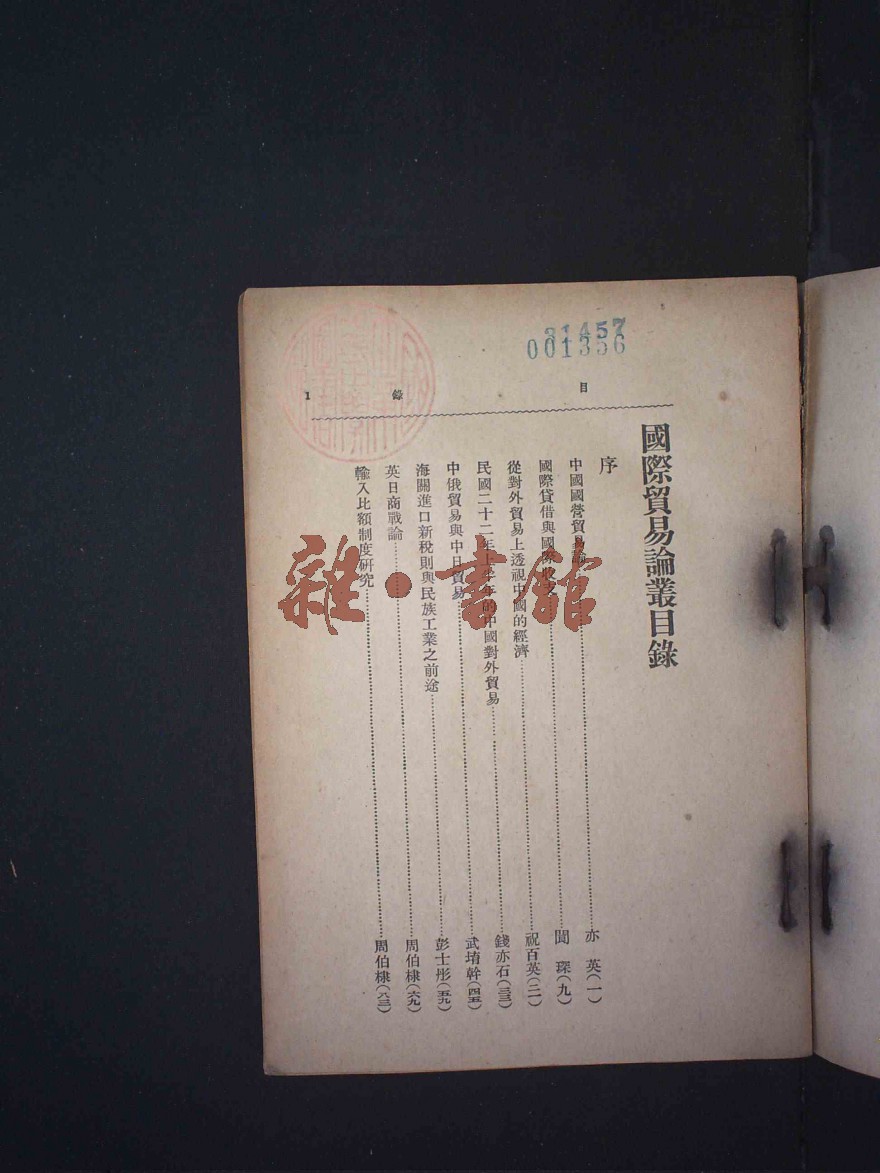 31457
001356
目
錄
1
國際貿易論叢目錄
序
中國國營貿易論……亦 英(一)
國際貸借與國際收支……閔 琛(九)
從對外貿易上透視中國的經濟……祝百英(二一)
民國二十二年上半年的中國對外貿易……錢亦石(三三)
中俄貿易與中日貿易……武堉幹(四五)
海關進口新稅則與民族工業之前途……彭士彤(五九)
英日商戰論……周伯棣(六九)
輸入比額制度研究……周伯棣(八三)
雜·書館